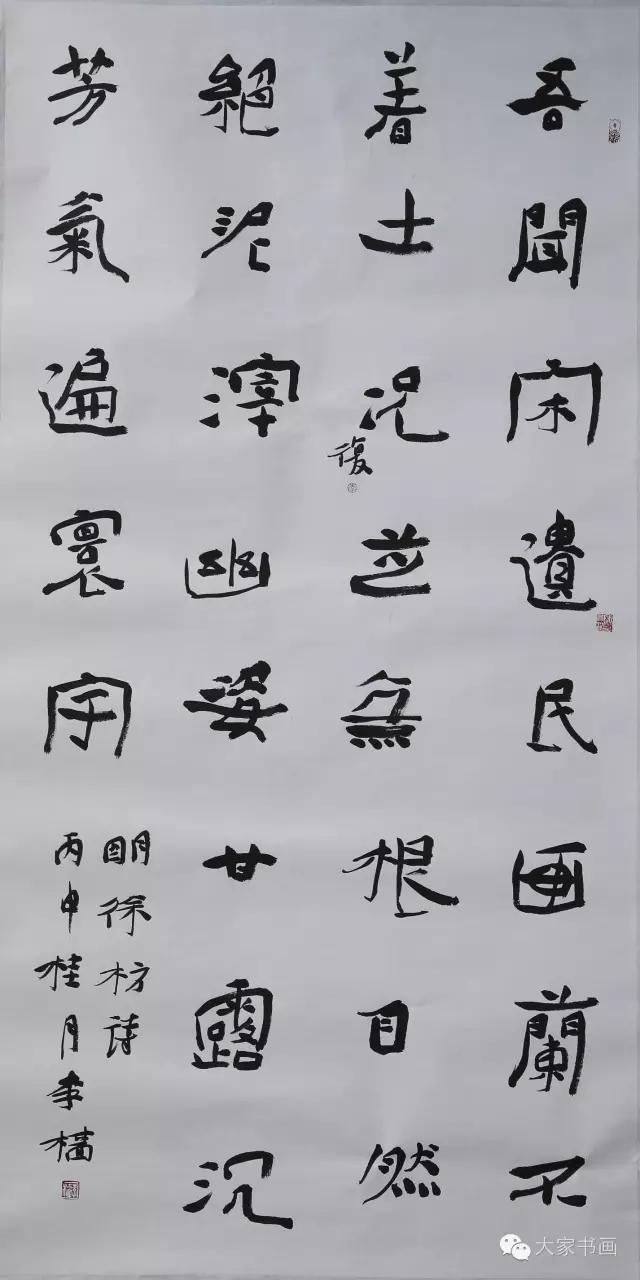 吾聞宋遺民画蘭不
着土况並無根自然
復
絕泥滓幽姿甘露沉
芳氣遍寰宇
明徐枋詩
丙申桂月李檣
大家书画